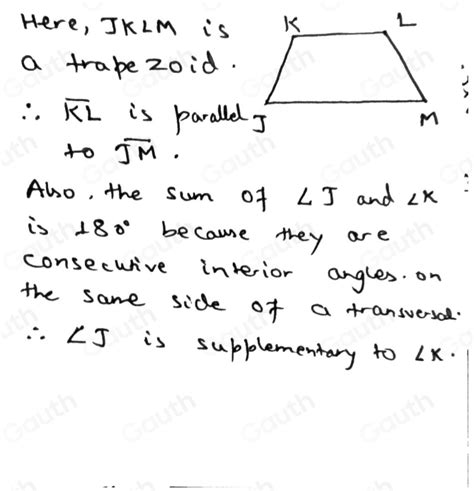 Here, JKLM is
a trapezoid.
K
L
J
M
∴ K̅L̅ is parallel
to J̅M̅.
Also, the sum of ∠J and ∠K
is 180° because they are
consecutive interior angles. on
the same side of a transversal.
∴ ∠J is supplementary to ∠K.
Gauth
Gauth
Gauth
Gauth